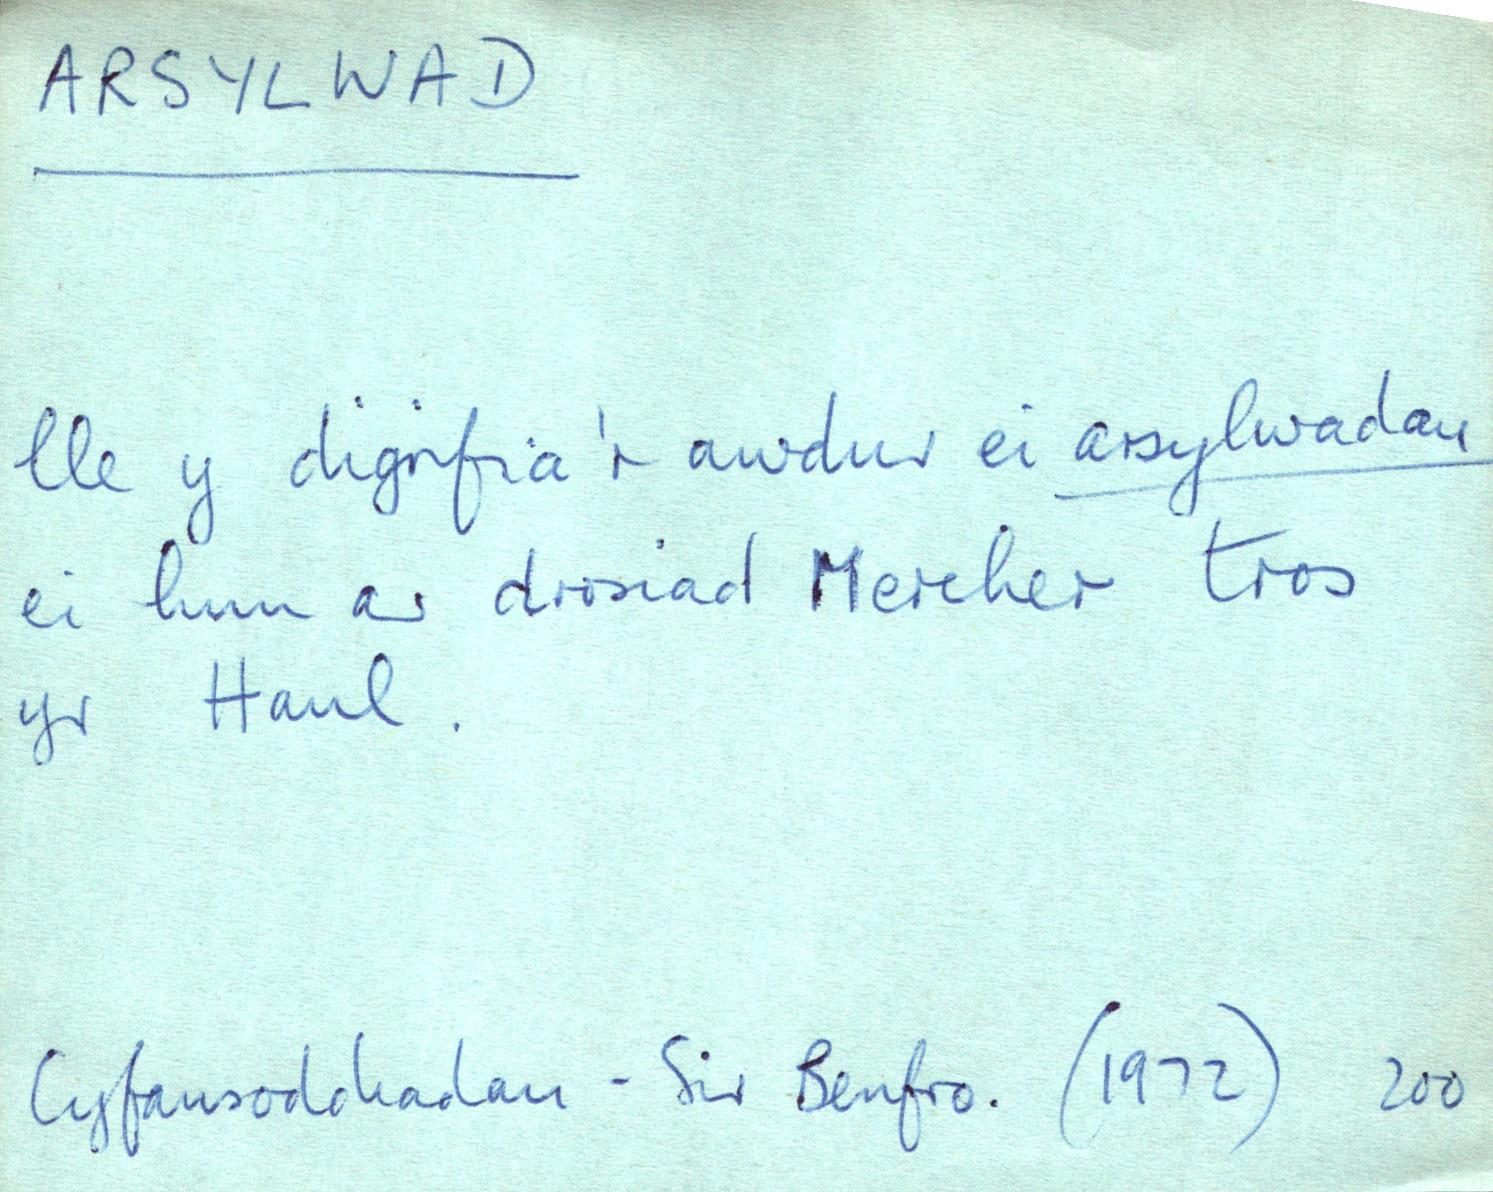 ARSYLWAD
lle y digrifia'r awdur ei arsylwadau
ei hun ar drosiad Mercher tros
yr Haul.
Cyfansoddiadau - Sir Benfro. (1972) 200